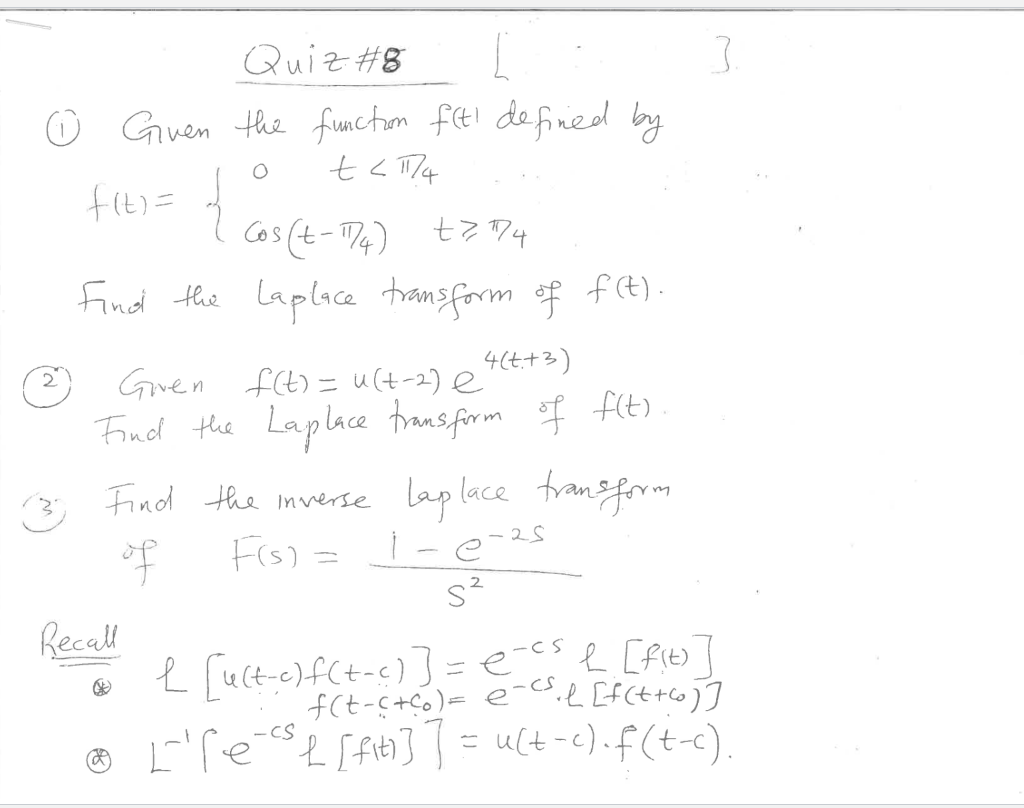 Quiz #8 [ ]
① Given the function f(t) defined by
f(t) = { 0 t < π/4
cos(t - π/4) t ≥ π/4
Find the Laplace transform of f(t).
② Given f(t) = u(t-2) e^4(t+3)
Find the Laplace transform of f(t).
③ Find the inverse Laplace transform
of F(s) = 1 - e^-2s / s^2
Recall
⊛ L [u(t-c)f(t-c)] = e^-cs L [f(t)]
f(t-c+c₀) = e^-cs . L [f(t+c₀)]
⊛ L^-1 [e^-cs L [f(t)]] = u(t-c).f(t-c).